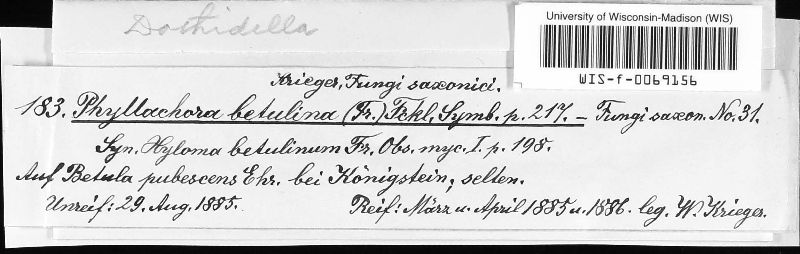 Dothidella
University of Wisconsin-Madison (WIS)
WIS-f-0069156
Krieger, Fungi saxonici.
183. Phyllachora betulina (Fr.) Fckl. Symb. p. 217. – Fungi saxon. No. 31.
Syn. Xyloma betulinum Fr. Obs. myc. I. p. 198.
Auf Betula pubescens Ehr. bei Königstein, selten.
Unreif: 29. Aug. 1885. Reif: März u. April 1885 u. 1886. leg. W. Krieger.